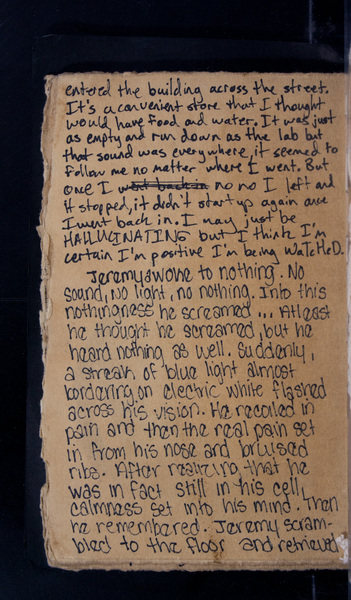 entered the building across the street.
It's a convenient store that I thought
would have food and water. It was just
as empty and run down as the lab but
that sound was everywhere, it seemed to
follow me no matter where I went. But
once I went back in no no I left and
it stopped, it didn't start up again once
I went back in. I may just be
HALLUCINATING but I think I'm
certain I'm positive I'm being WaTcHeD.
Jeremy awoke to nothing. No
sound, no light, no nothing. Into this
nothingness he screamed... Atleast
he thought he screamed, but he
heard nothing as well. Suddenly,
a streak of blue light almost
bordering on electric white flashed
across his vision. He recoiled in
pain and then the real pain set
in from his nose and bruised
ribs. After realizing that he
was in fact still in his cell,
calmness set into his mind. Then
he remembered. Jeremy scram-
bled to the floor and retrieved